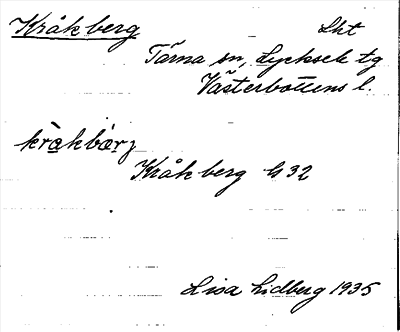 Kråkberg Lht
Tärna sn, Lycksele tg
Västerbottens l.
Kråkberg G32
Lisa Lidberg 1935